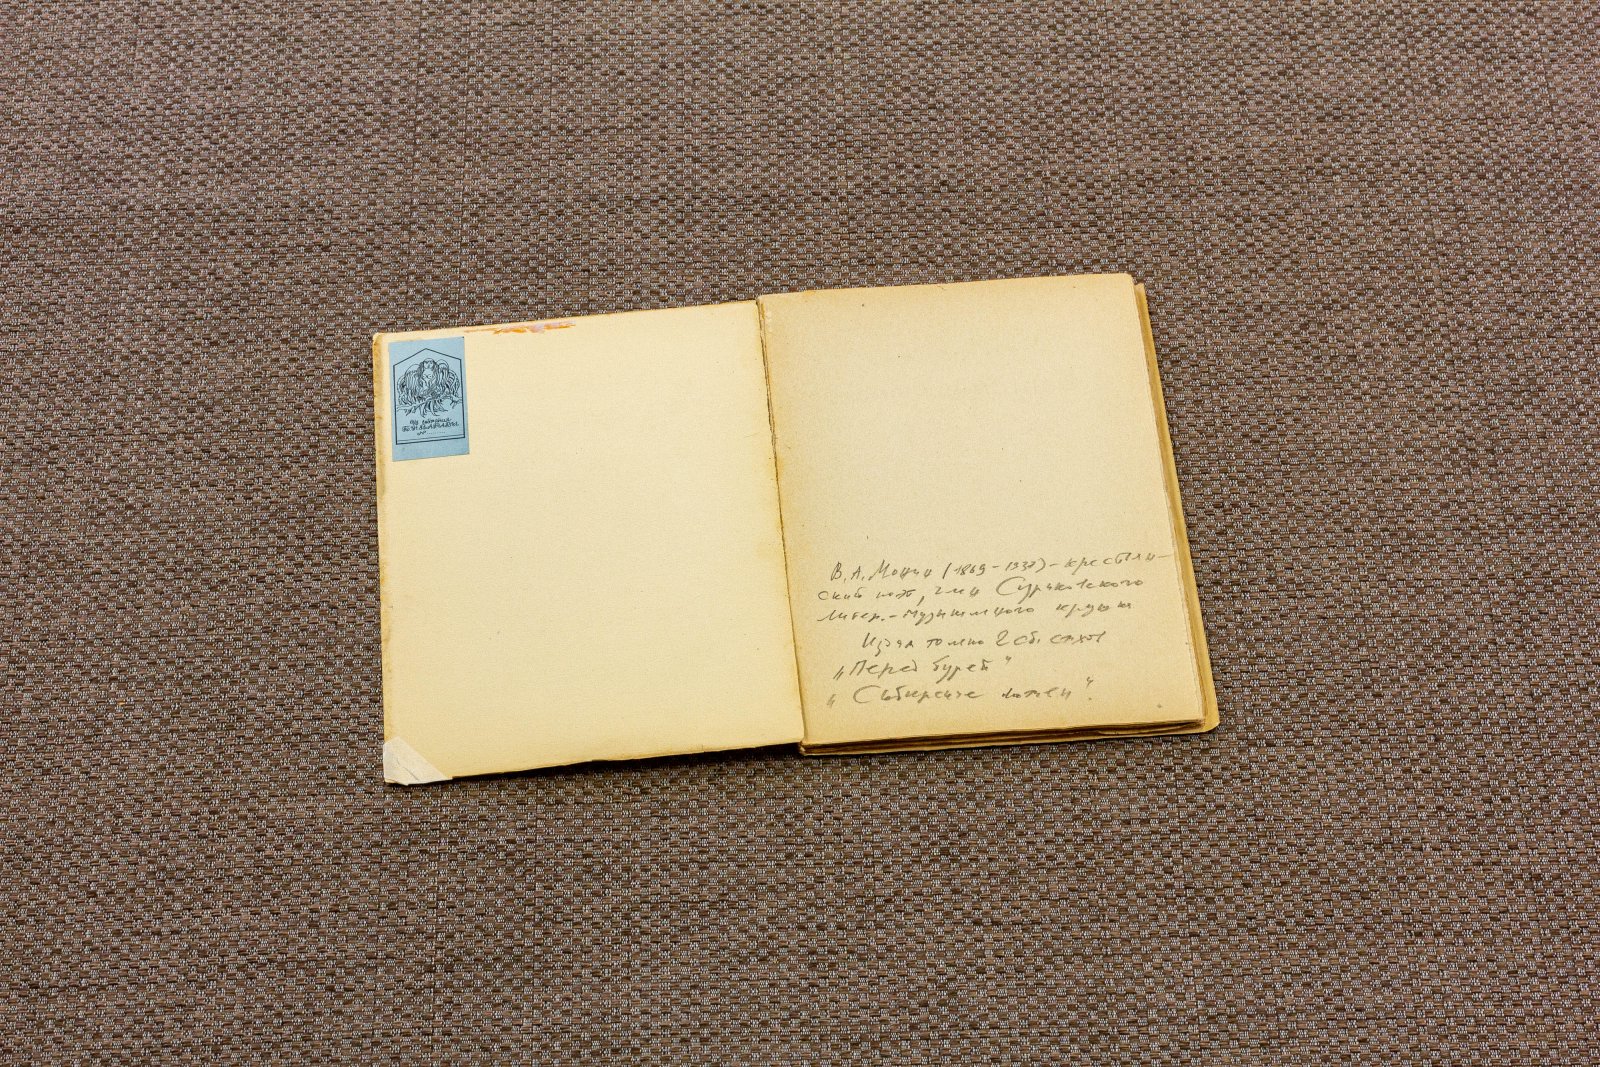 В. А. Монин (1869-1937) - крестьян-
ский поэт, член Суриковского
литер.-музыкального кружка
Издал только 2 сб. стихов
„Перед бурей"
„Сибирские"